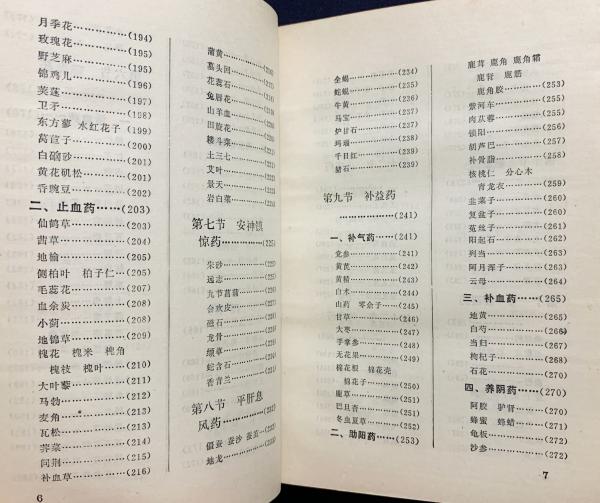 月季花……………(194)
玫瑰花……………(195)
野芝麻……………(195)
锦鸡儿……………(196)
荚蒾………………(197)
卫矛………………(198)
东方蓼 水红花子 (199)
萵苣子……………(200)
白硇砂……………(201)
黄花矾松…………(201)
香豌豆……………(202)
二、止血药……(203)
仙鹤草……………(203)
茜草………………(204)
地榆………………(205)
侧柏叶 柏子仁…(205)
毛蕊花……………(207)
血余炭……………(208)
小蓟………………(208)
地锦草……………(209)
槐花 槐米 槐角
槐枝 槐叶………(210)
大叶藜……………(211)
马勃………………(212)
麦角………………(213)
瓦松………………(213)
荠菜………………(214)
问荆………………(215)
补血草……………(216)
6
蒲黄
墓头回
花蕊石
兔唇花
山羊血
田旋花
耧斗菜
土三七
艾叶
景天
岩白菜
第七节 安神镇
惊药……………(225)
朱砂
远志
九节菖蒲
合欢皮
磁石
龙骨
缬草
蛇含石
香青兰
第八节 平肝息
风药
僵蚕 蚕沙
地龙
全蝎………………(234)
蛇蜕………………(235)
牛黄………………(236)
马宝………………(237)
炉甘石……………(237)
玛瑙………………(238)
千日红……………(239)
赭石………………(239)
第九节 补益药
………………(241)
一、补气药……(241)
党参………………(241)
黄芪………………(242)
黄精………………(243)
白术………………(244)
山药 零余子……(244)
甘草………………(245)
大枣………………(247)
手掌参……………(248)
无花果……………(249)
棉花根 棉花壳
棉花子……………(250)
鹿草………………(251)
巴旦杏……………(251)
冬虫夏草…………(252)
二、助阳药……(253)
鹿茸 鹿角 鹿角霜
鹿肾 鹿筋
鹿角胶…………(253)
紫河车……………(255)
肉苁蓉……………(256)
锁阳………………(257)
胡芦巴……………(258)
补骨脂……………(258)
核桃仁 分心木
青龙衣…………(259)
韭菜子……………(260)
复盆子……………(260)
菟丝子……………(261)
阳起石……………(262)
列当………………(263)
阿月浑子…………(263)
云母………………(264)
三、补血药……(265)
地黄………………(265)
白芍………………(266)
当归………………(267)
枸杞子……………(268)
石花………………(269)
四、养阴药……(270)
阿胶 驴肾………(270)
蜂蜜 蜂蜡………(271)
龟板………………(272)
沙参………………(272)
7